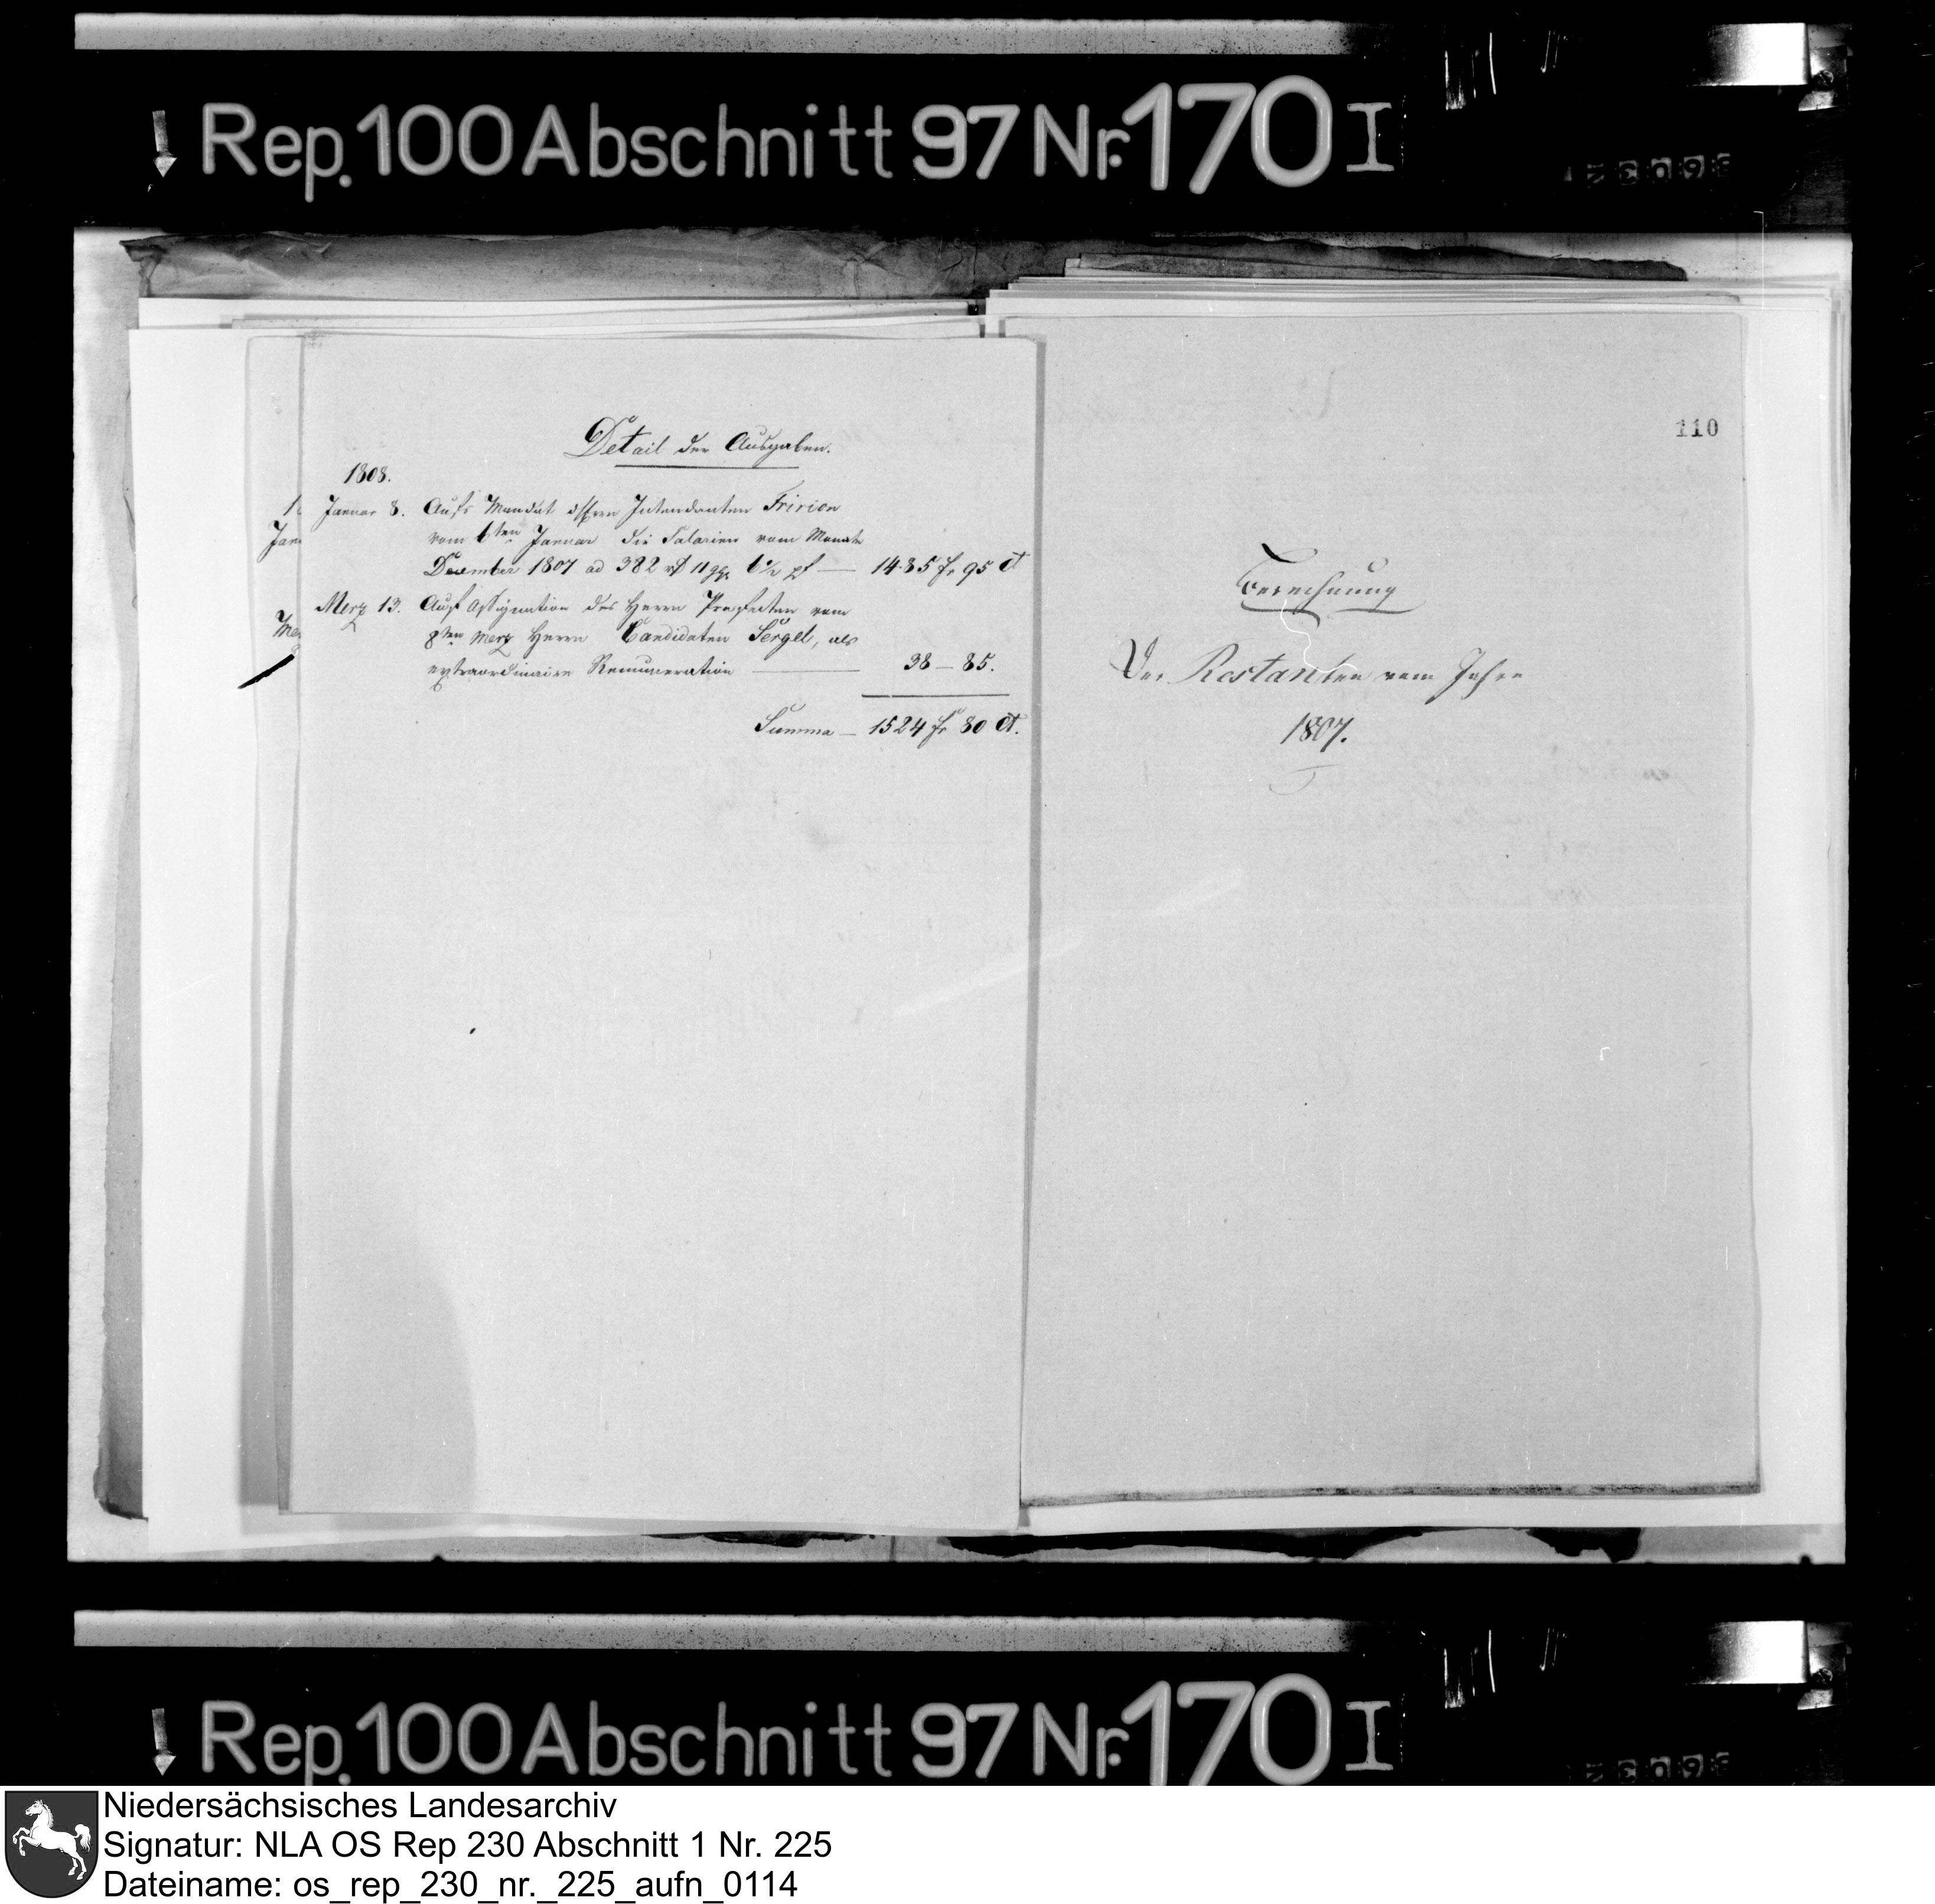 Rep. 100 Abschnitt 97 Nr. 170 I
Detail der Ausgaben.
1808.
Januar 8. Aufs Mandat des Herrn Intendanten Fririon
vom 6ten Januar die Salarien vom Monate
December 1807 ad 382 rt 11 ggr 6½ pf — 1485 fr 95 Ct
Merz 13. Auf Assignation des Herrn Praefecten vom
8ten Merz Herrn Candidaten Sergel, als
extraordinaire Remuneration — 38 — 85.
Summa — 1524 fr 80 Ct.
110
Berechnung
Der Restanten vom Jahre
1807.
Rep. 100 Abschnitt 97 Nr. 170 I
Niedersächsisches Landesarchiv
Signatur: NLA OS Rep 230 Abschnitt 1 Nr. 225
Dateiname: os_rep_230_nr._225_aufn_0114